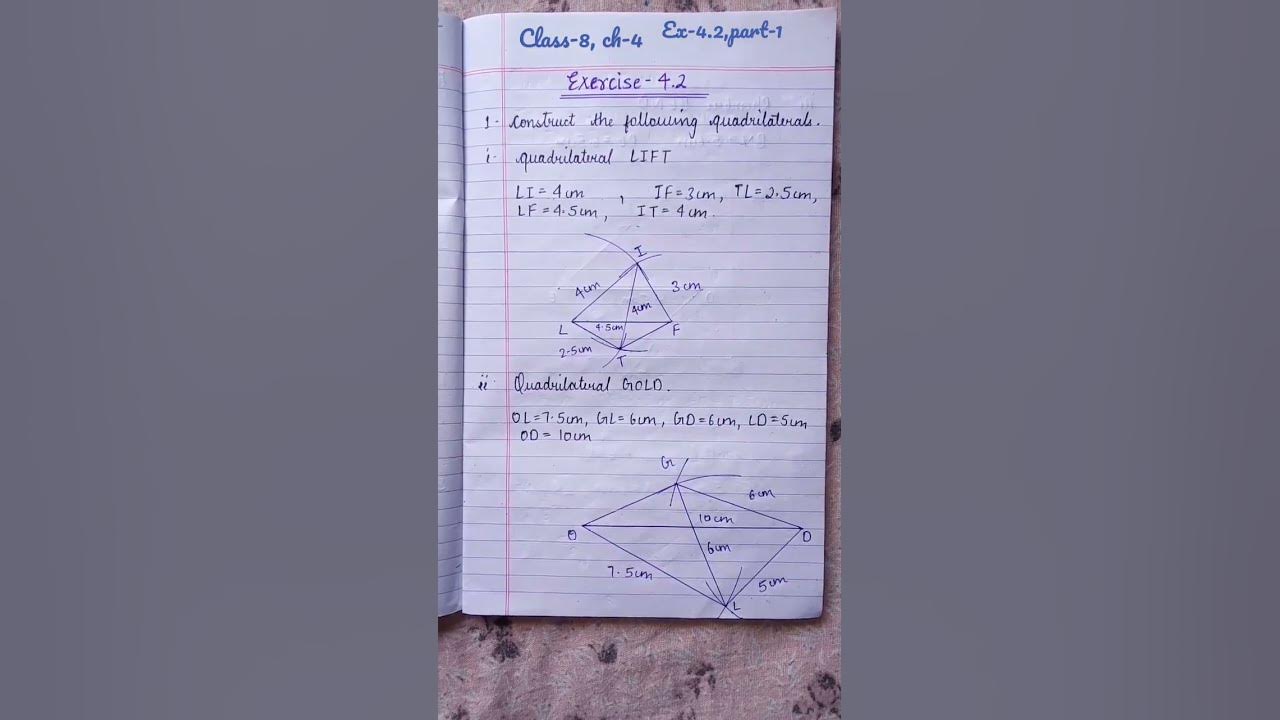 Class-8, ch-4 Ex-4.2,part-1
Exercise - 4.2
1- Construct the following quadrilaterals.
i- quadrilateral LIFT
LI = 4cm , IF = 3cm, TL = 2.5cm,
LF = 4.5cm, IT = 4cm.
I
4cm 3cm
4cm
L 4.5cm F
2.5cm
T
ii- Quadrilateral GOLD.
OL = 7.5cm, GL = 6cm, GD = 6cm, LD = 5cm
OD = 10cm
G
6cm
10cm
O D
6cm
7.5cm
5cm
L